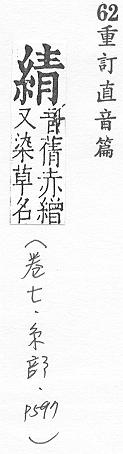 62重訂直音篇
綪
音蒨赤繒
又染草名
(卷七.糸部.P597)